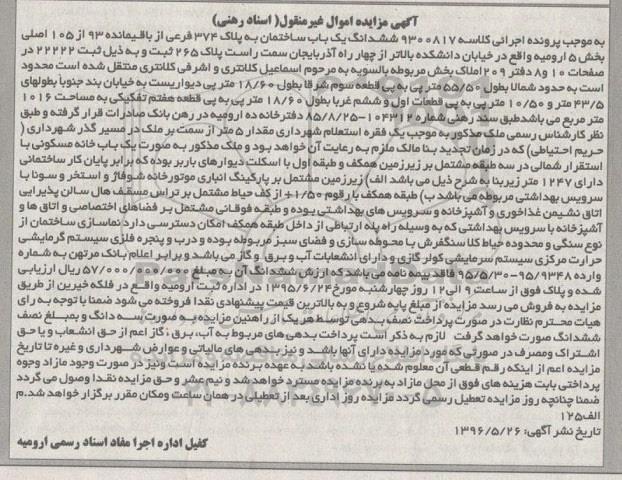 آگهی مزایده اموال غیرمنقول( اسناد رهنی)
به موجب پرونده اجرائی کلاسه ۹۳۰۰۸۱۷ ششدانگ یک باب ساختمان به پلاک ۳۷۴ فرعی از باقیمانده ۹۳ از ۱۰۵ اصلی
بخش ۵ ارومیه واقع در خیابان دانشکده بالاتر از چهار راه آذربایجان سمت راست پلاک ۲۶۵ ثبت و به ذیل ثبت ۲۲۲۲۲ در
صفحات ۱۰ و۸ دفتر ۲۰۹ املاک بخش مربوطه بالسویه به مرحوم اسماعیل کلانتری و اشرفی کلانتری منتقل شده است محدود
است به حدود شمالا بطول ۵۵/۵۰ متر پی به پی قطعه سوم شرقا بطول ۱۸/۶۰ متر پی دیواریست به خیابان بند جنوباً بطولهای
۴۳/۵ متر و ۱۰/۵۰ متر پی به پی قطعات اول و ششم غربا بطول ۱۸/۶۰ متر پی به پی قطعه هفتم تفکیکی به مساحت ۱۰۱۶
متر مربع می باشدطبق سند رهنی شماره ۱۰۴۳۱۲-۸۵/۸/۲۵ دفترخانه ده ارومیه در رهن بانک صادرات قرار گرفته و طبق
نظر کارشناس رسمی ملک مذکور به موجب یک فقره استعلام شهرداری مقدار ۵ متر از سمت بر ملک در مسیر گذر شهرداری (
حریم احتیاطی) که در زمان تجدید بنا مالک ملزم به رعایت آن خواهد بود و ملک مذکور به صورت یک باب خانه مسکونی با
استقرار شمالی در سه طبقه مشتمل بر زیرزمین همکف و طبقه اول با اسکلت دیوارهای باربر بوده که برابر پایان کار ساختمانی
دارای ۱۲۴۷ متر زیربنا به شرح ذیل می باشد الف) زیرزمین مشتمل بر پارکینگ انباری موتورخانه شوفاژ و استخر و سونا با
سرویس بهداشتی مربوطه می باشد ب) طبقه همکف با رقوم ۱/۵۰+ از کف حیاط مشتمل بر تراس مسقف هال سالن پذیرایی
اتاق نشیمن غذاخوری و آشپزخانه و سرویس های بهداشتی بوده و طبقه فوقانی مشتمل بر فضاهای اختصاصی و اتاق ها و
آشپزخانه با سرویس بهداشتی که به وسیله راه پله ارتباطی از داخل طبقه همکف امکان دسترسی دارد نماسازی ساختمان از
نوع سنگی و محدوده حیاط کلا سنگفرش با محوطه سازی و فضای سبز مربوطه بوده و درب و پنجره فلزی سیستم گرمایشی
حرارت مرکزی سیستم سرمایشی کولر گازی و دارای انشعابات آب و برق و گاز می باشد و برابر اعلام بانک مرتهن به شماره
وارده ۹۵/۹۳۴۸-۹۵/۵/۳۰ فاقد بیمه نامه می باشد که ارزش ششدانگ آن به مبلغ ۵۷/۰۰۰/۰۰۰/۰۰۰ ریال ارزیابی
شده و پلاک فوق از ساعت ۹ الی ۱۲ روز چهارشنبه مورخ ۱۳۹۵/۶/۲۴ در اداره ثبت ارومیه واقع در فلکه خیرین از طریق
مزایده به فروش می رسد مزایده از مبلغ پایه شروع و به بالاترین قیمت پیشنهادی نقدا فروخته می شود ضمنا با توجه به رای
هیات محترم نظارت در صورت پرداخت نصف بدهی توسط هر یک از راهنین مزایده به صورت سه دانگ و بمبلغ نصف
ششدانگ صورت خواهد گرفت لازم به ذکر است پرداخت بدهی های مربوط به آب، برق ، گاز اعم از حق انشعاب و یا حق
اشتراک ومصرف در صورتی که مورد مزایده دارای آنها باشد و نیز بدهی های مالیاتی و عوارض شهرداری و غیره تا تاریخ
مزایده اعم از اینکه رقم قطعی آن معلوم شده یا نشده باشد به عهده برنده مزایده است ونیز در صورت وجود مازاد وجوه
پرداختی بابت هزینه های فوق از محل مازاد به برنده مزایده مسترد خواهد شد و نیم عشر و حق مزایده نقدا وصول می گردد
ضمنا چنانچه روز مزایده تعطیل رسمی گردد مزایده روز اداری بعد از تعطیلی در همان ساعت ومکان مقرر برگزار خواهد شد.م
الف۱۲۵
تاریخ نشر آگهی: ۱۳۹۶/۵/۲۶
کفیل اداره اجرا مفاد اسناد رسمی ارومیه